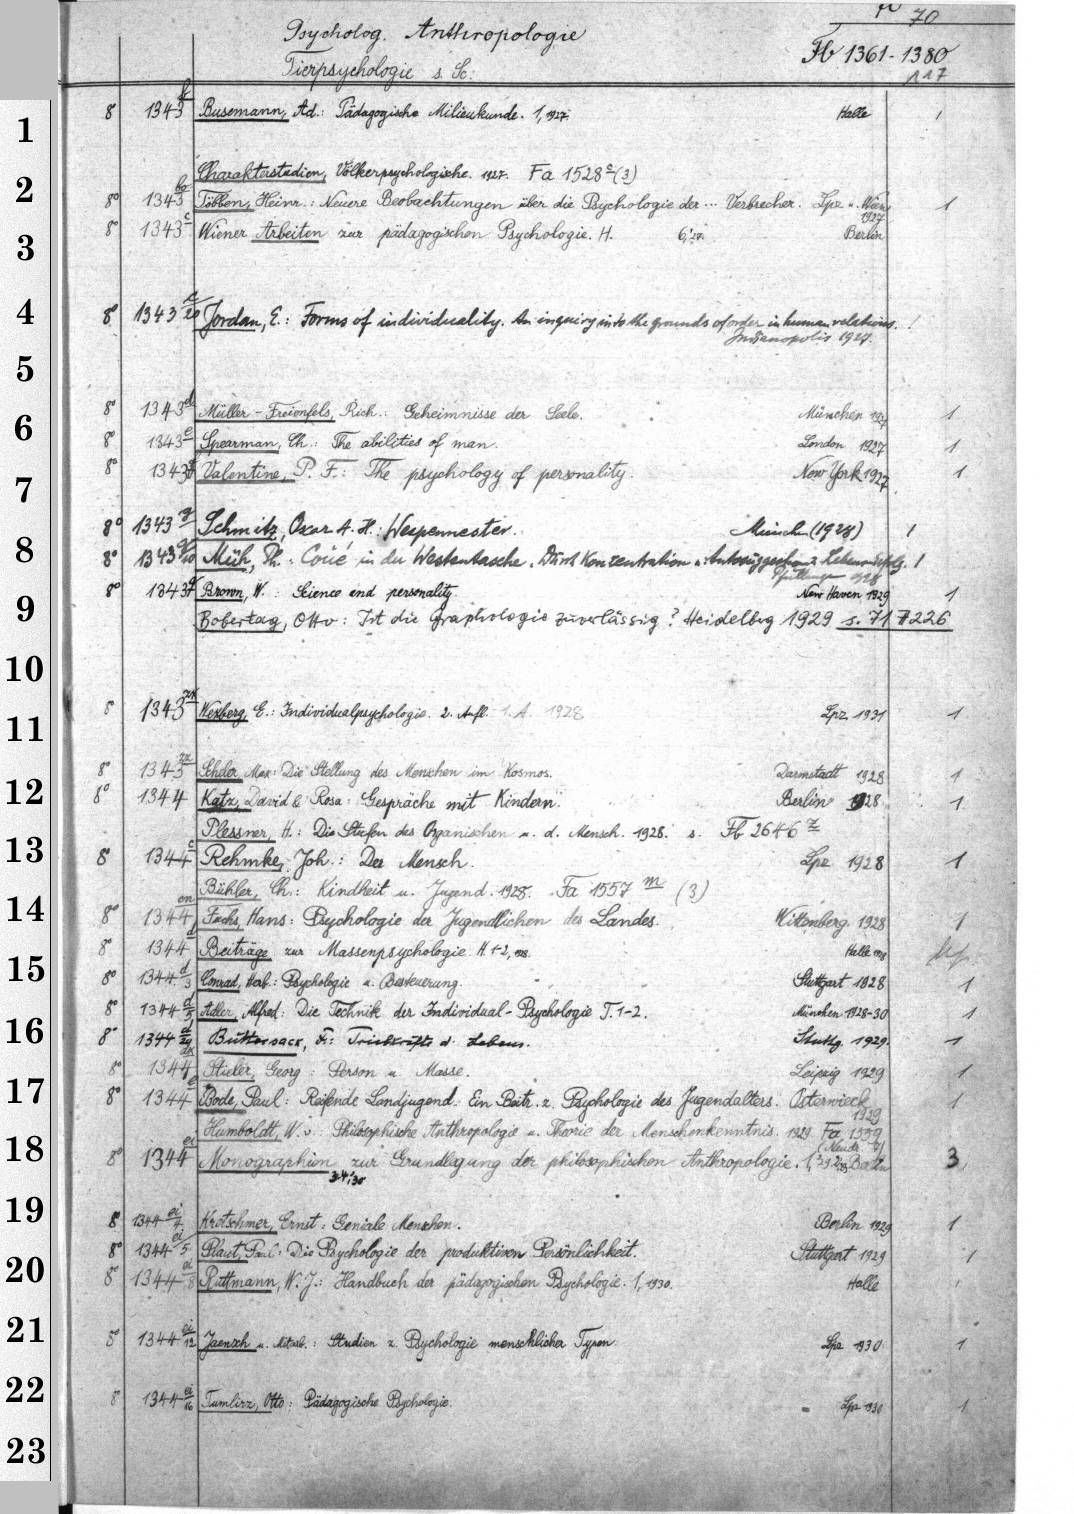 70
Psycholog. Anthropologie
Fb 1361-1380
Tierpsychologie s. Sc.
117
1
8° 1343 Busemann, Ad.: Pädagogische Milieukunde. 1, 1927. Halle 1
2
Charakterstudien, Völkerpsychologische. 1927. Fa 1528 c (3)
8° 1343 bo Többen, Heinr.: Neuere Beobachtungen über die Psychologie der ... Verbrecher. Lpz u. Wien 1927 1
3
8° 1343 c Wiener Arbeiten zur pädagogischen Psychologie. H. 6,'27. Berlin
4
8° 1343 c/20 Jordan, E.: Forms of individuality. An inquiry into the grounds of order in human relations. 1
Indianopolis 1927.
5
6
8° 1343 d Müller-Freienfels, Rich.: Geheimnisse der Seele. München 1927 1
8° 1343 e Spearman, Ch.: The abilities of man. London 1927 1
7
8° 1343 f Valentine, P. F.: The psychology of personality. New York 1927 1
8
8° 1343 g Schmitz, Oscar A. H.: Wespennester. Münch (1928) 1
8° 1343 g/10 Müh, Th.: Coué in der Westentasche. Durch Konzentration u. Autosuggestion z. Lebenserfolg. 1
Pfullingen 1928
9
8° 1343 Brown, W.: Science and personality. New Haven 1929 1
Bobertag, Otto: Ist die Graphologie zuverlässig? Heidelbrg 1929 s. 71 F 226
10
11
8° 1343 Wexberg, E.: Individualpsychologie. 2. Aufl. 1. A. 1928 Lpz 1931 1
12
8° 1343 zz Scheler, Max: Die Stellung des Menschen im Kosmos. Darmstadt 1928 1
8° 1344 Katz, David & Rosa: Gespräche mit Kindern. Berlin 1928 1
Plessner, H.: Die Stufen des Organischen u. d. Mensch. 1928. s. Fb 2646 z
13
8° 1344 c Rehmke, Joh.: Der Mensch. Lpz 1928 1
Bühler, Ch.: Kindheit u. Jugend. 1928. Fa 1557 m (3)
14
8° 1344 cn Fuchs, Hans: Psychologie der Jugendlichen des Landes. Wittenberg 1928 1
8° 1344 d Beiträge zur Massenpsychologie H. 1-2, 1928. Halle 1928
15
8° 1344 d/3 Conrad, Herb.: Psychologie u. Besteuerung. Stuttgart 1928 1
16
8° 1344 d/5 Adler, Alfred: Die Technik der Individual-Psychologie T. 1-2. München 1928-30 1
8° 1344 d/29 Buttersack, F.: Triebkräfte d. Lebens. Stuttg. 1929. 1
8° 1344 dx Stieler, Georg: Person u Masse. Leipzig 1929 1
17
8° 1344 e Bode, Paul: Reifende Landjugend. Ein Beitr. z. Psychologie des Jugendalters. Osterwieck 1929 1
Humboldt, W. v.: Philosophische Anthropologie u. Theorie der Menschenkenntnis. 1929 Fa 1339
18
8° 1344 ei Monographien zur Grundlegung der philosophischen Anthropologie. 1, Berlin 3
3.4,'30
19
8° 1344 ei/4 Kretschmer, Ernst: Geniale Menschen. Berlin 1929 1
20
8° 1344 ei/5 Plaut, Paul: Die Psychologie der produktiven Persönlichkeit. Stuttgart 1929 1
8° 1344 ei/8 Ruttmann, W. J.: Handbuch der pädagogischen Psychologie. 1, 1930. Halle 1
21
8° 1344 ei/12 Jaensch u. Mitarb.: Studien z. Psychologie menschlicher Typen. Lpz 1930 1
22
8° 1344 ei/16 Tumlirz, Otto: Pädagogische Psychologie. Lpz 1930 1
23